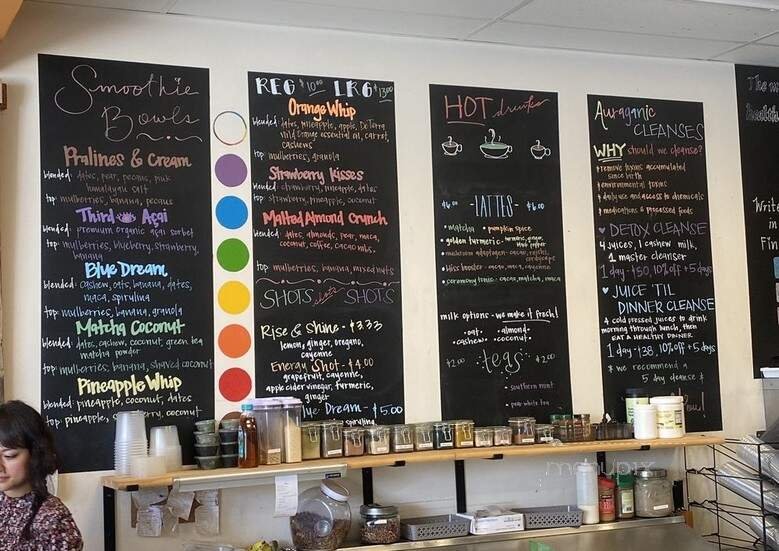 Smoothie
Bowls
Pralines & Cream
blended: dates, pear, pecans, pink
himalayan salt
top: mulberries, banana, pecans
Third Açai
blended: premium organic açai sorbet
top: mulberries, blueberry, strawberry,
banana
Blue Dream
blended: cashew, oats, banana, dates,
maca, spirulina
top: mulberries, banana, granola
Matcha Coconut
blended: dates, cashew, coconut, green tea
matcha powder
top: mulberries, banana, shaved coconut
Pineapple Whip
blended: pineapple, coconut, dates
top: pineapple, strawberry, coconut
REG $10.00 LRG $13.00
Orange Whip
blended: dates, pineapple, apple, DoTerra
wild orange essential oil, carrot,
cashews
top: mulberries, granola
Strawberry Kisses
blended: strawberry, pineapple, dates
top: strawberry, pineapple, coconut
Malted Almond Crunch
blended: dates, almonds, pear, maca,
coconut, coffee, cacao nibs.
top: mulberries, banana, mixed nuts
SHOTS shots SHOTS
Rise & Shine - $3.33
lemon, ginger, oregano,
cayenne
Energy Shot - $4.00
grapefruit, cayenne,
apple cider vinegar, turmeric,
ginger
Blue Dream - $5.00
spirulina
HOT drinks
$6.00 -LATTES- $6.00
• matcha • pumpkin spice
• golden turmeric - turmeric, ginger,
black pepper
• mushroom adaptogen - cacao, reishi,
cordyceps
• bliss booster - cacao, maca, cayenne
• ceremony tonic - cacao, matcha, maca
milk options - we make it fresh!
• oat • • almond •
• cashew • • coconut •
$2.00 teas $2.00
• southern mint
• pear white tea
Auraganic
CLEANSES
WHY should we cleanse?
* remove toxins accumulated
since birth
* environmental toxins
* exposure to chemicals
* medications & processed foods
♥ DETOX CLEANSE
4 juices, 1 cashew milk,
1 master cleanser
1 day - $50, 10% off + 5 days
♥ JUICE 'TIL
DINNER CLEANSE
4 cold pressed juices to drink
morning through lunch, then
EAT A HEALTHY DINNER
1 day - $38, 10% off + 5 days
* we recommend a
5 day cleanse *
The
Write
in
Fin
menupix